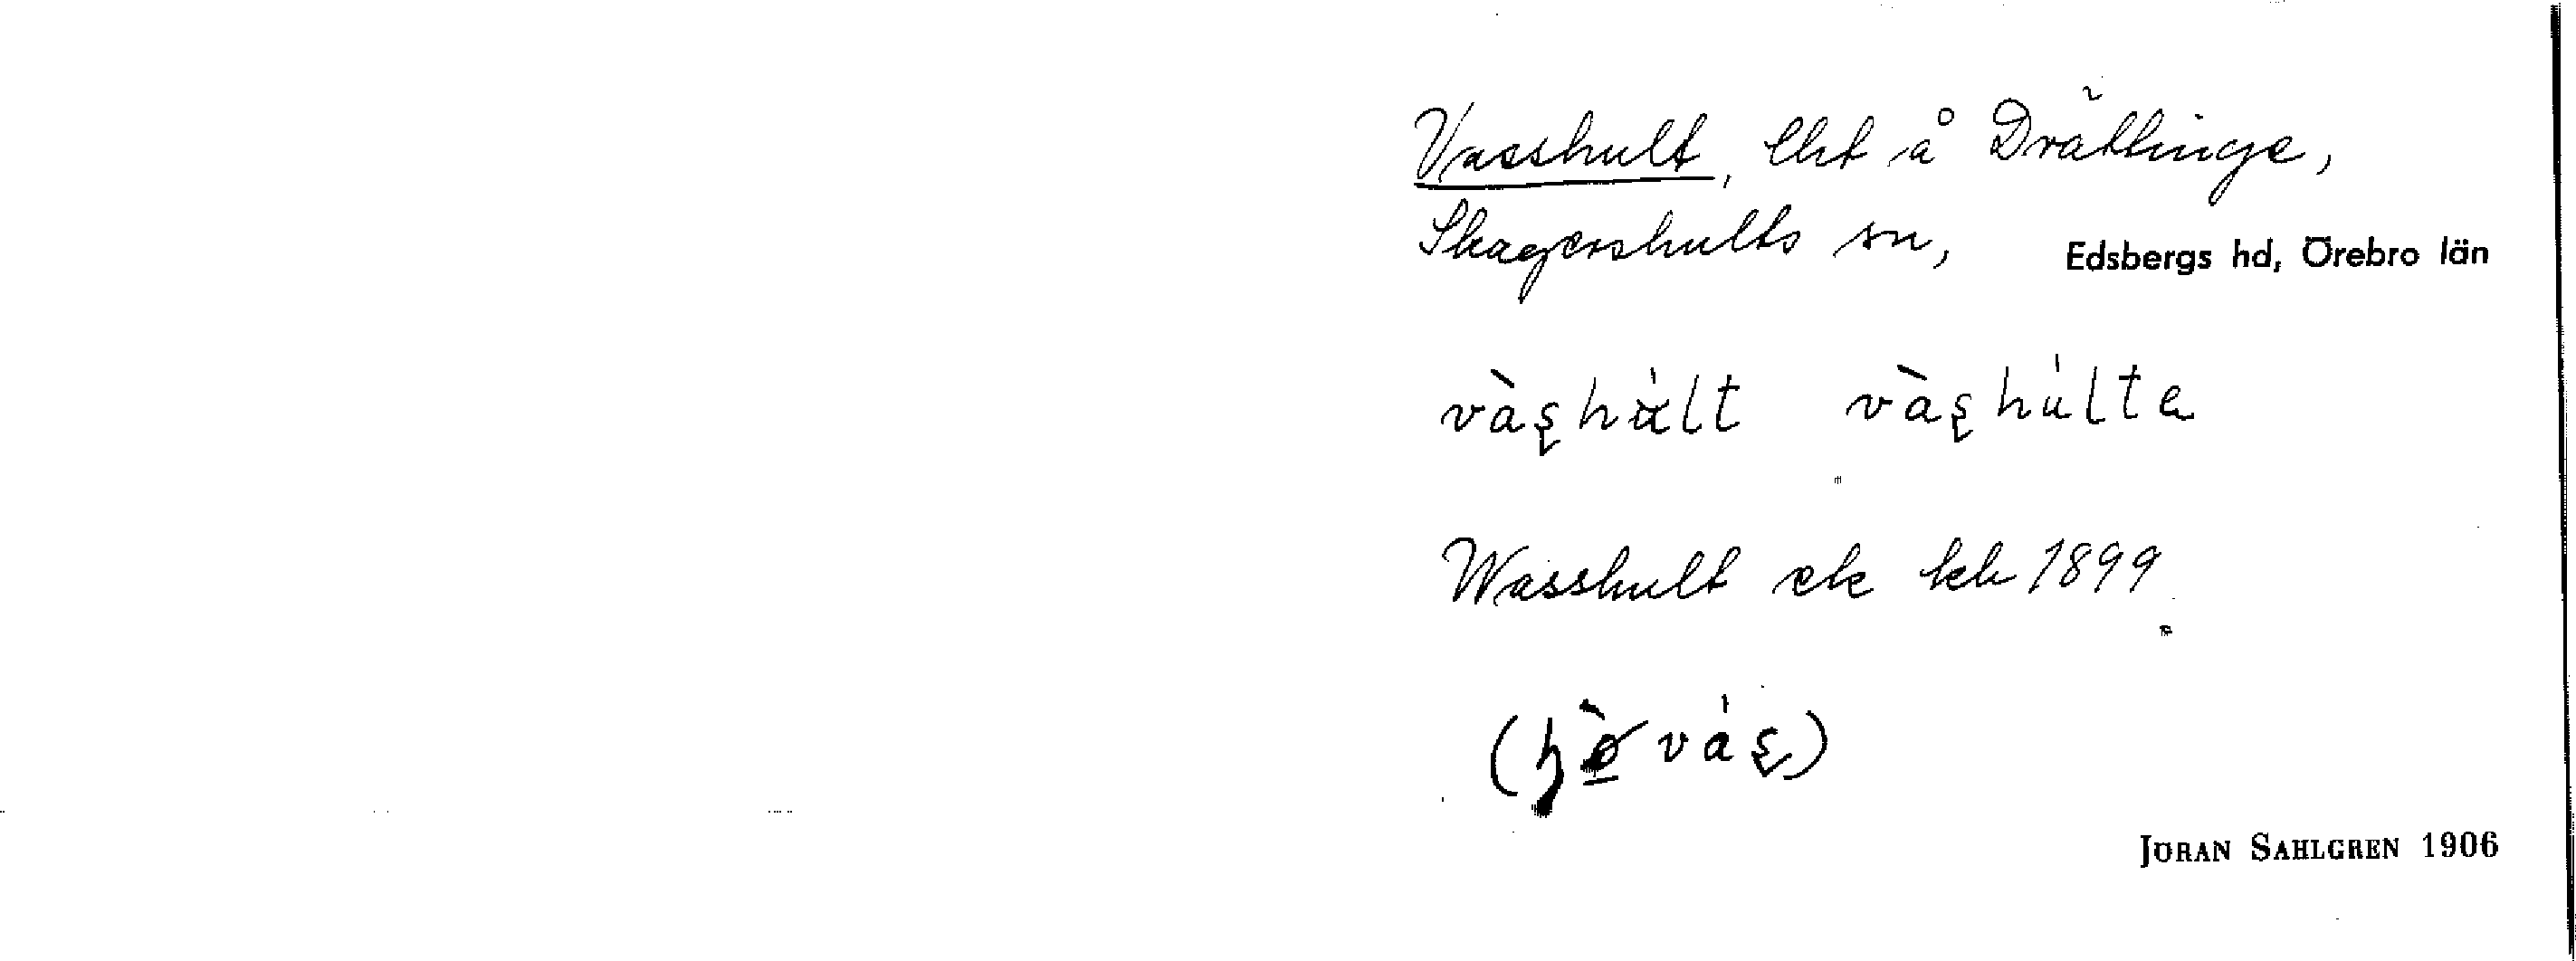 Vasshult, lht å Drättinge,
Skagershults sn, Edsbergs hd, Örebro län
vàshúlt vàshúlta
Wasshult ek kb 1899
JÖRAN SAHLGREN 1906